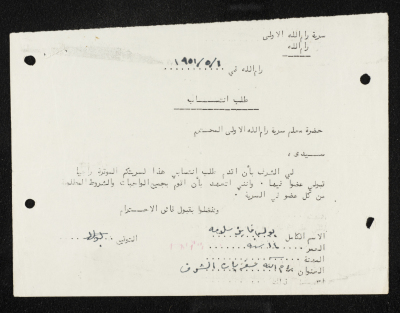 سرية رام الله الاولى
رام الله
رام الله في ١٩٥١/٥/١
طلب انتساب
حضرة معلم سرية رام الله الاولى المحترم
سيدي ،
لي الشرف بأن اقدم طلب انتسابي هذا لسريتكم الموقرة راجيا
قبولي عضوا فيها . وانني اتعهد بأن اقوم بجميع الواجبات والشروط
من كل عضو في السرية .
وتفضلوا بقبول فائق الاحترام
الاسم الكامل
التوقيع
العمر
المهنة
العنوان رام الله